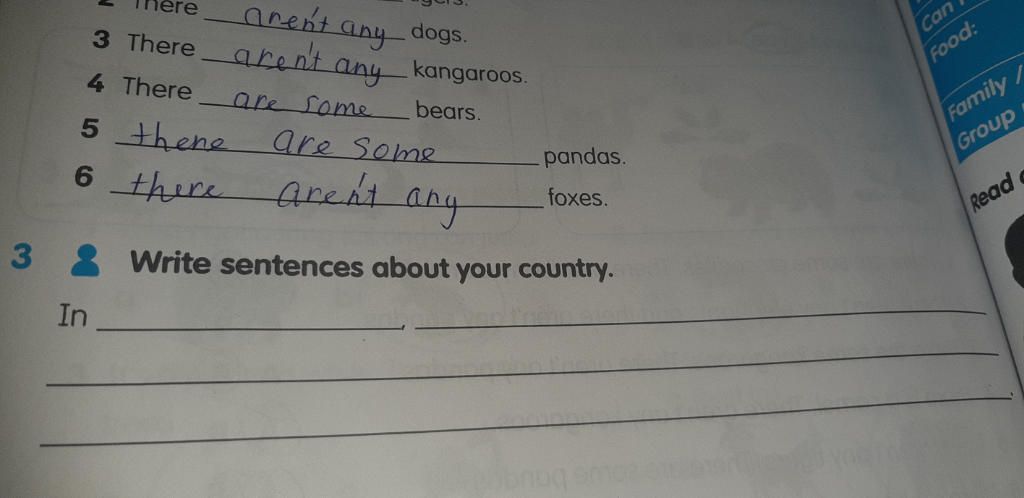 2 There aren't any dogs.
3 There aren't any kangaroos.
4 There are some bears.
5 there are some pandas.
6 there aren't any foxes.
3 Write sentences about your country.
In ,
Can
Food:
Family /
Group
Read